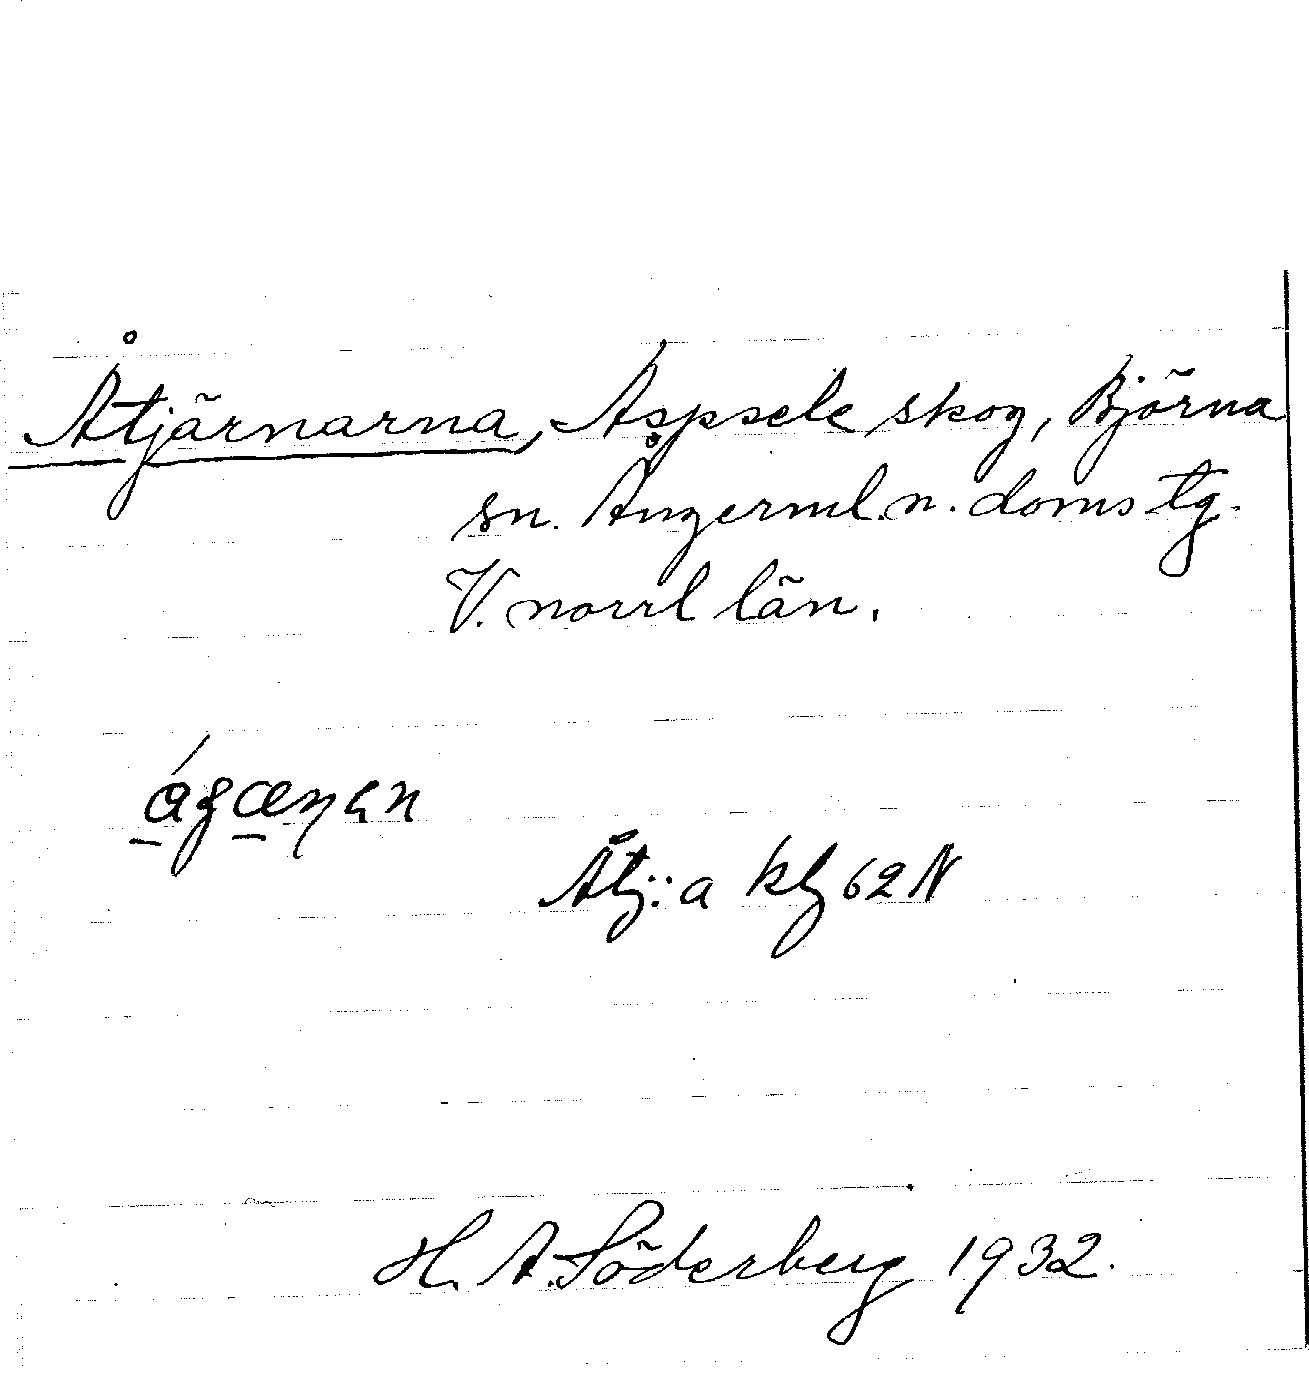 Åtjärnarna, Aspsele skog, Björna
sn. Ångerml. n. doms tg.
V. norrl län.
Åtj:a kbl 62 N
H. A. Söderberg 1932.